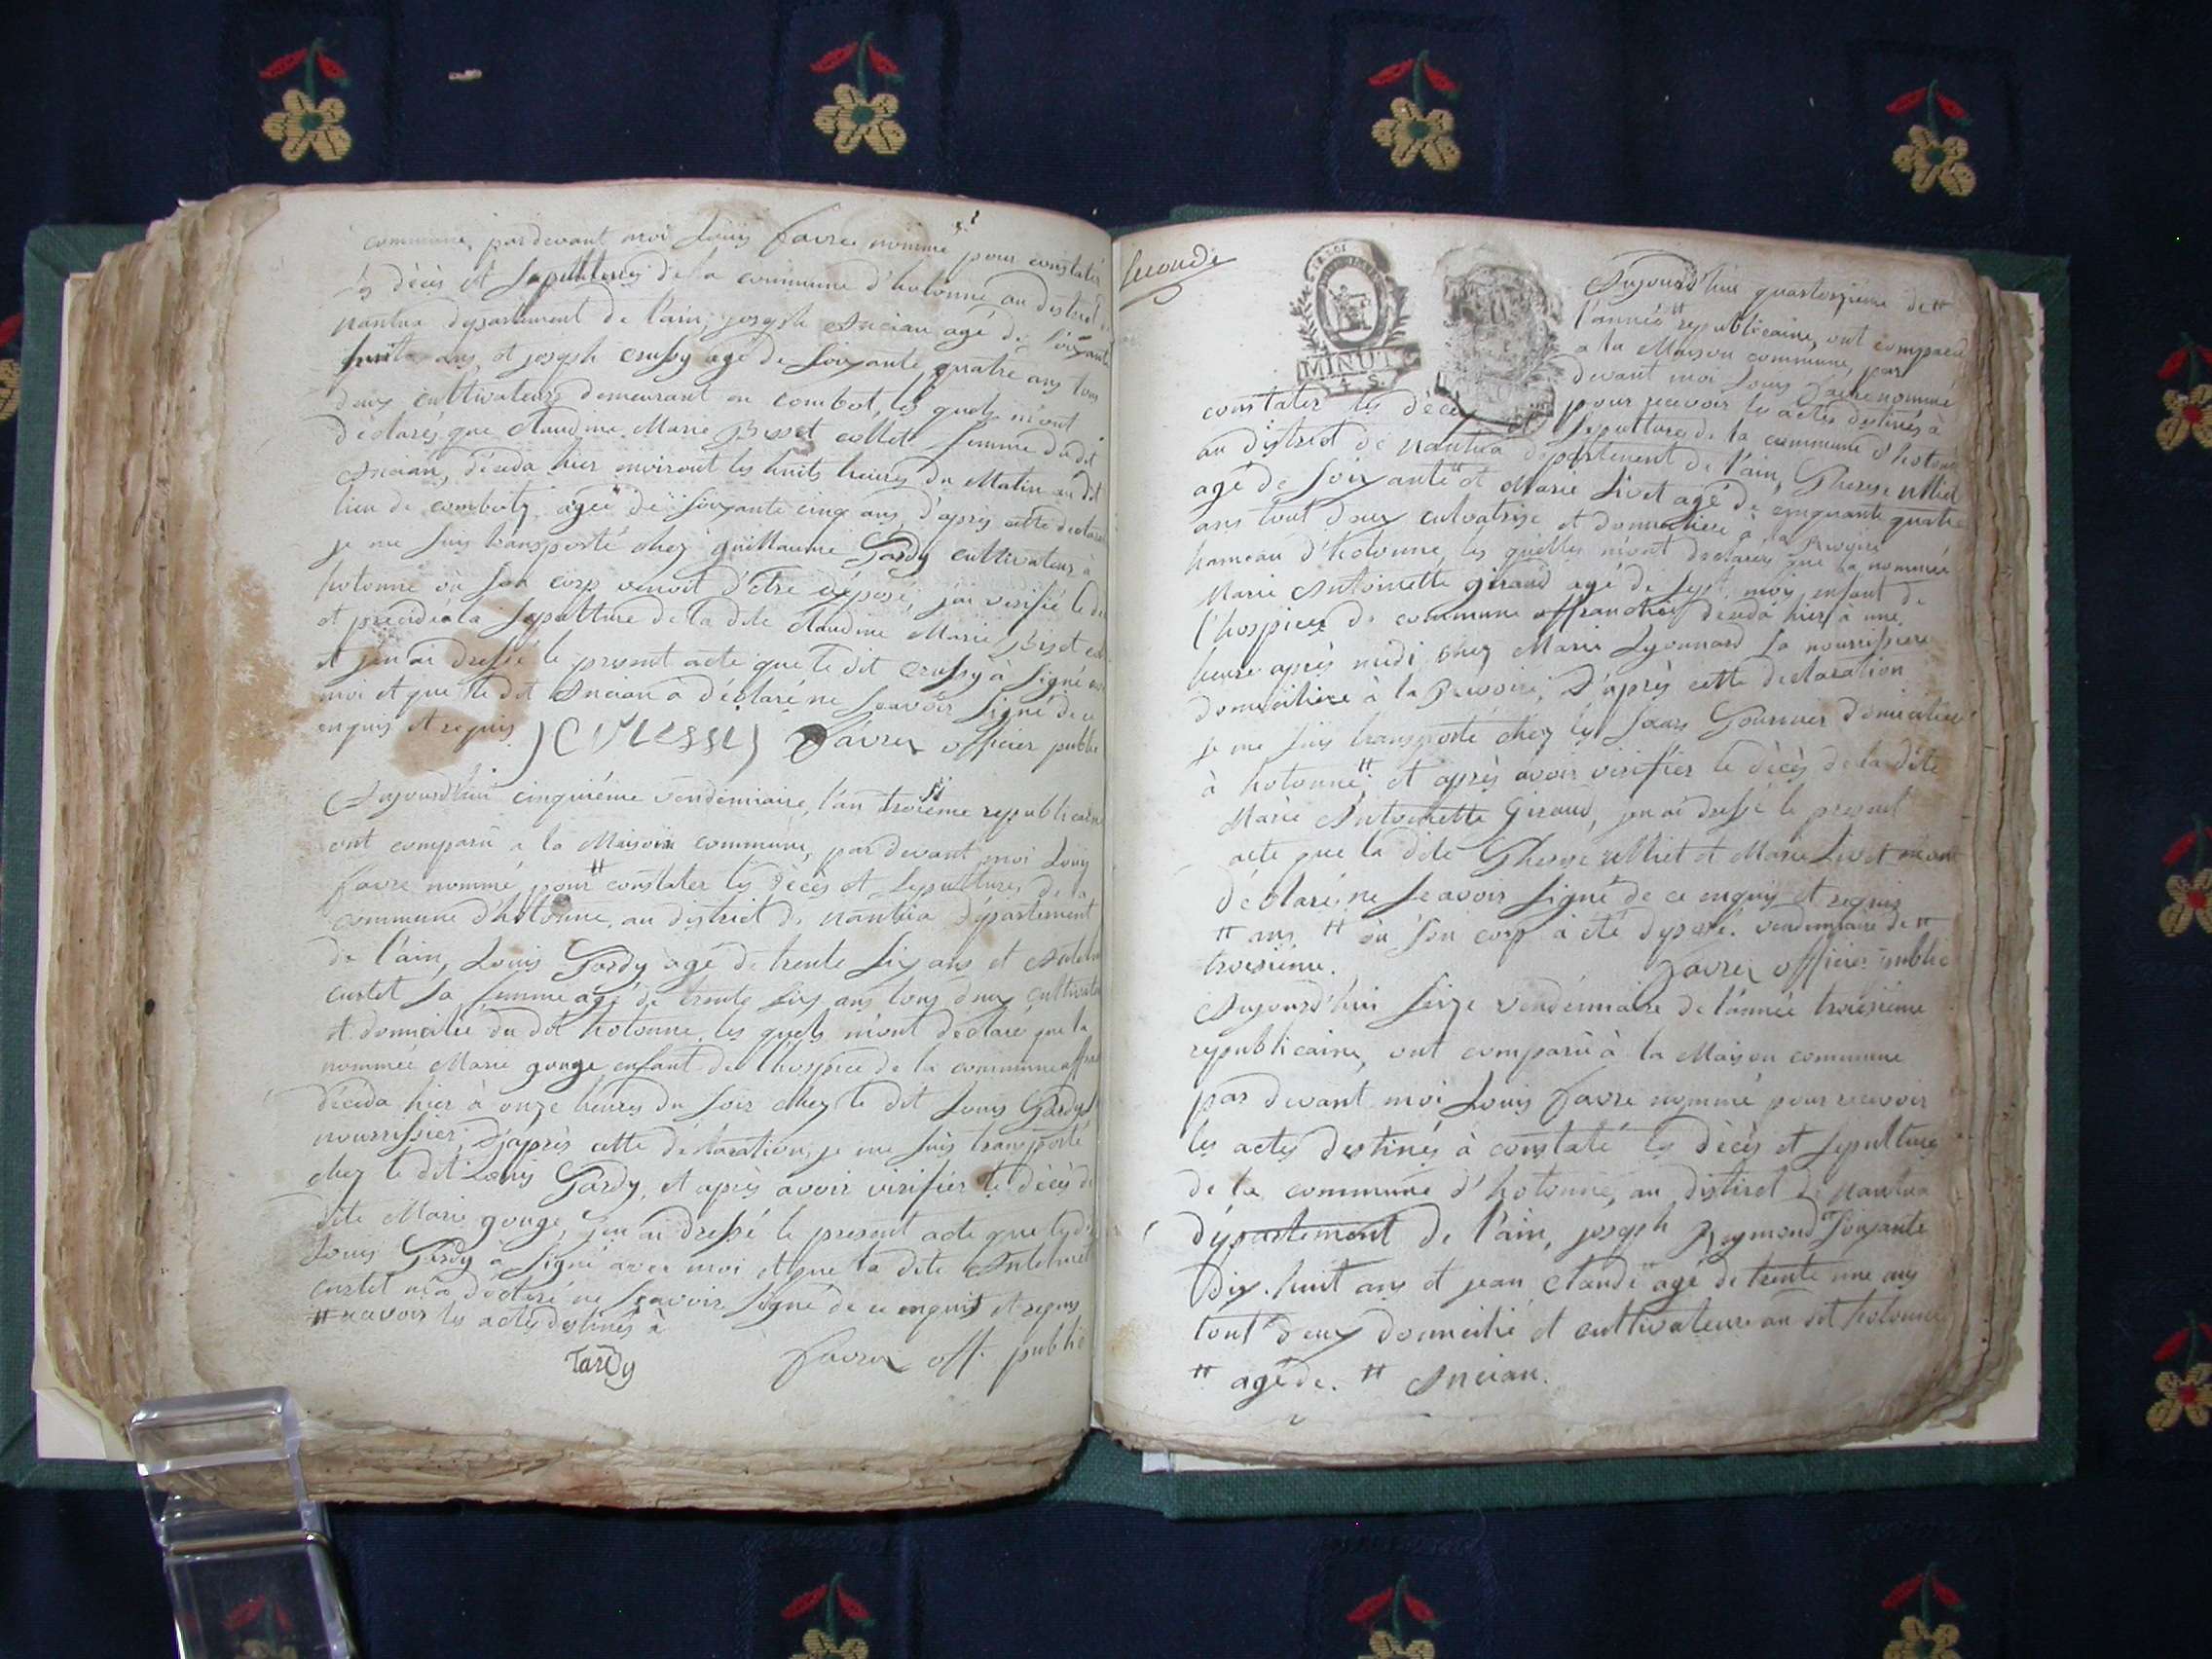 commune, pardevant moi Louis favre nommé pour constater
les décès et sepultures de la commune d'hotonne au district de
nantua département de l'ain, joseph Ancian agé de soixante
huit ans, et joseph crussy agé de soixante quatre ans tous
deux cultivateurs demeurant au combet, les quels m'ont
déclarés que claudine Marie Bisset collet femme du dit
Ancian, décéda hier environt les huits heures du Matin au dit
lieu de combet, agée de soixante cinq ans, d'après cette declaration
je me suis transporté chez guillaume Tardy cultivateur à
hotonne où son corps venoit d'etre déposé, j'ai verifié le
et précidé a la sepulture de la dite claudine Marie Biset
et j'en ai dressé le present acte que le dit crussy à signé
moi et que le dit Ancian à déclaré ne sçavoir signé de ce
enquis et requis
J CRUSSY favre officier public
Aujourd'hui cinquiéme vendémiaire, l'an troisième republicain
ont comparu a la Maison commune, par devant moi Louis
favre nommé pour # constater les décès et sepultures de la
commune d'hotonne, au district de nantua département
de l'ain, Louis Tardy agé de trente six ans et
custet sa femme agé de trente six ans tous deux
et domicilié du dit hotonne, les quels m'ont déclaré que la
nommée Marie gouge enfant de l'hospice de la commune
décéda hier à onze heures du soir chez le dit Louis Tardy
nourrissier, d'après cette déclaration, je me suis transporté
chez le dit Louis Tardy, et après avoir verifier le décès de
dite Marie gouge, j'en ai dressé le present acte que le dit
Louis Tardy à signé avec moi et que la dite
custet m'a déclaré ne sçavoir signé de ce enquis et requis
# recevoir les actes destinés à
Tardy favre off. public
seconde
MINUTE
4 S.
Aujourd'hui quatorzieme de #
l'année # republicaine, ont comparu
a la Maison commune, par
devant moi Louis favre nommé
pour recevoir les actes destinés à
constater les décès et sepulture de la commune d'hotonne
au district de nantua département de l'ain, Therese
agé de soixante # et Marie Livet agé de cinquante quatre
ans tout deux culvatrise et domiciliée à la
hameau d'hotonne, les quelles m'ont declarées que la nommée
Marie Antoinette Giraud agé de sept moi, enfant de
l'hospice de commune affranchie décéda hier à une
heure après midi chez Marie Lyonnard sa nourrissiere
domiciliée à la, D'après cette declaration
je me suis transporté chez les domiciliés
à hotonne # et après avoir verifier le décès de la dite
Marie Antoinette Giraud, j'en ai dressé le present
acte que la dite Therese et Marie Livet m'ont
déclaré ne sçavoir signé de ce enquis et requis
# ans # où son corp à été déposé. vendemiaire de #
troisiéme. favre officier public
Aujourd'hui seize vendémiaire de l'année troisiéme
republicaine, ont comparu à la Maison commune
par devant moi Louis favre nommé pour recevoir
les actes destinés à constaté les décès et sepulture
de la commune d'hotonne, au district de nantua
département de l'ain, joseph Reymond # soixante
dix-huit ans et jean claude # agé de trente une ans
tout deux domicilié et cultivateurs au dit hotonne
# agé de. # Ancian.